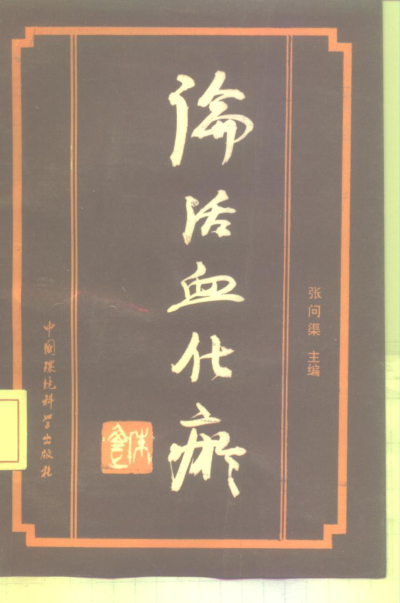 論活血化瘀
张问渠 主编
中国环境科学出版社